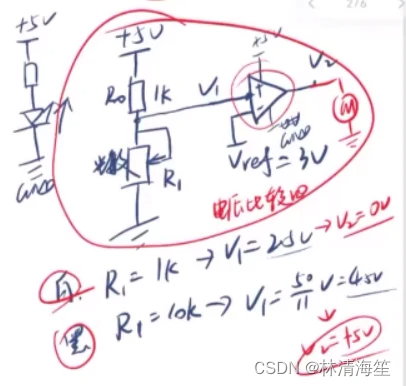 2/6
+5V
+5V
+5V
R₀ 1K
V₁
V₂
M
GND
光敏
R₁
GND
Vref = 3V
电压比较器
白 R₁ = 1K → V₁ = 2.5V → V₂ = 0V
黑 R₁ = 10K → V₁ = 50/11 V = 4.5V
V₂ = +5V
CSDN @林清海笙